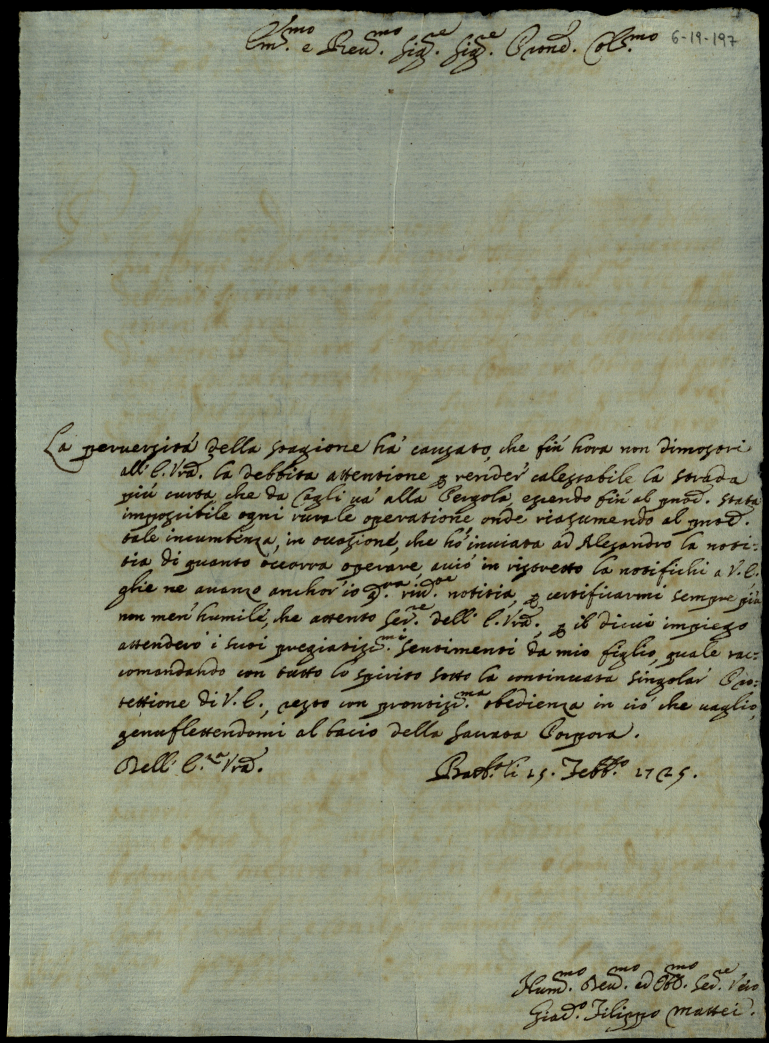 Em.mo e Reu.mo Sig.re Sig.re Prone. Col.mo 6-19-197
La peruersità della stagione hà causato, che fin' hora non dimostri
all' E. Vra. la debbita attentione p render' calestabile la strada
più curta, che da Cagli uà alla Pergola, essendo fin' al pnte. stata
impossibile ogni rurale operatione onde riasumendo al pnte.
tale incumbenza, in occasione, che hò inuiata ad Alesandro la noti-
tia di quanto occorra operare acciò in ristretto la notifichi a V. E.
glie ne auanzo anchor' io notitia, p certificarmi sempre più
non men' humile, che attento Ser.re dell' E. Vra., p il di cui impiego
attenderò i suoi pregiatiss.mi sentimenti da mio figlio, quale rac-
comandando con tutto lo spirito sotto la continuata singolar' Pro-
tettione di V. E., resto con prontiss.ma obedienza in ciò che uaglio,
genuflettendomi al bacio della Sacrata Porpora.
Dell' E.za Vra. li 15. Febb.o 1725.
Hum.mo Deu.mo ed Obb.mo Ser.re Vero
Filippo Mattei.